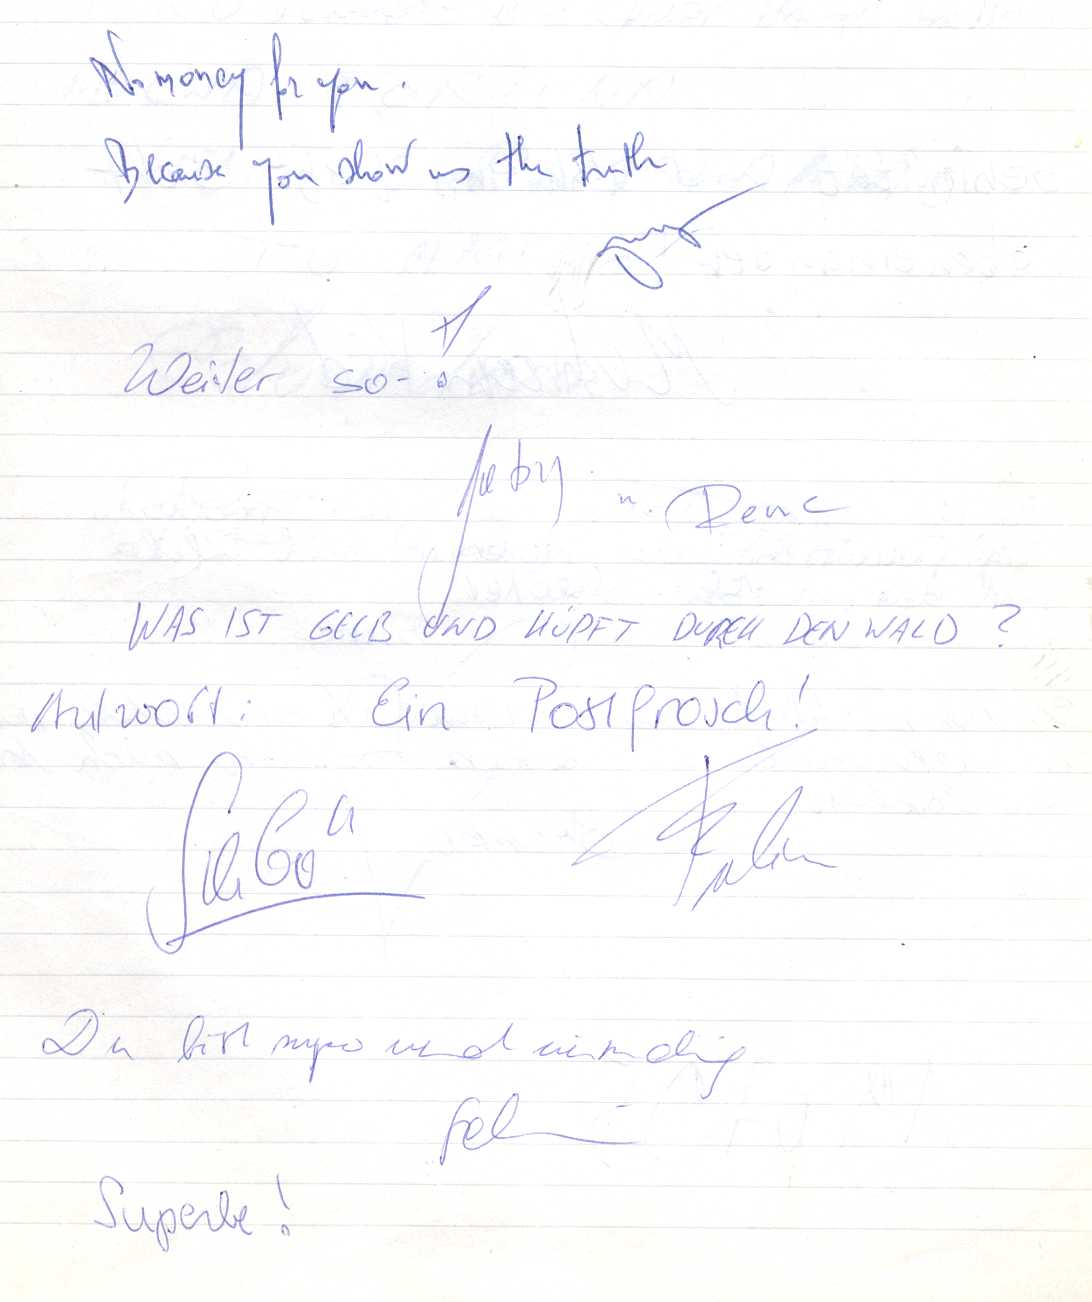 No money for you.
Because you show us the truth
Weiter so-!
u. Rene
WAS IST GELB UND HÜPFT DURCH DEN WALD?
Antwort: Ein Postfrosch!
Du bist super und einmalig
Superbe!